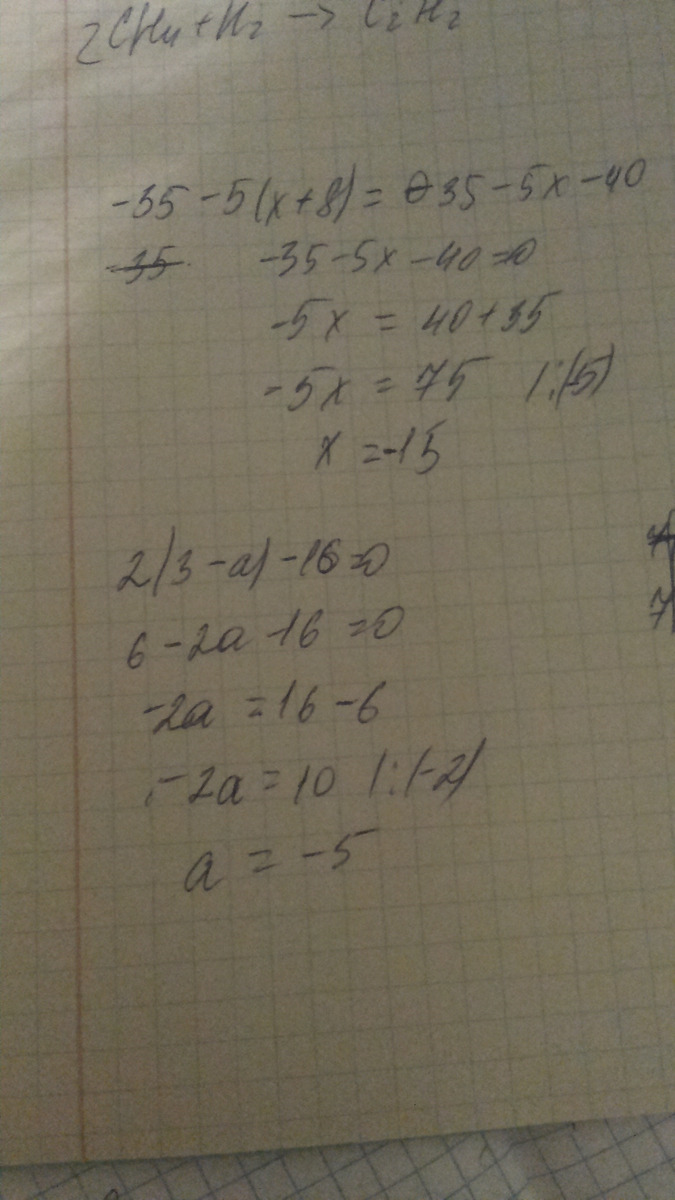 2CH4 + H2 → C2H2
-35 - 5(x+8) = -35 - 5x - 40
-35 -35 - 5x - 40 = 0
-5x = 40 + 35
-5x = 75 /:(-5)
x = -15
2(3 - a) - 16 = 0
6 - 2a - 16 = 0
-2a = 16 - 6
-2a = 10 /:(-2)
a = -5
7